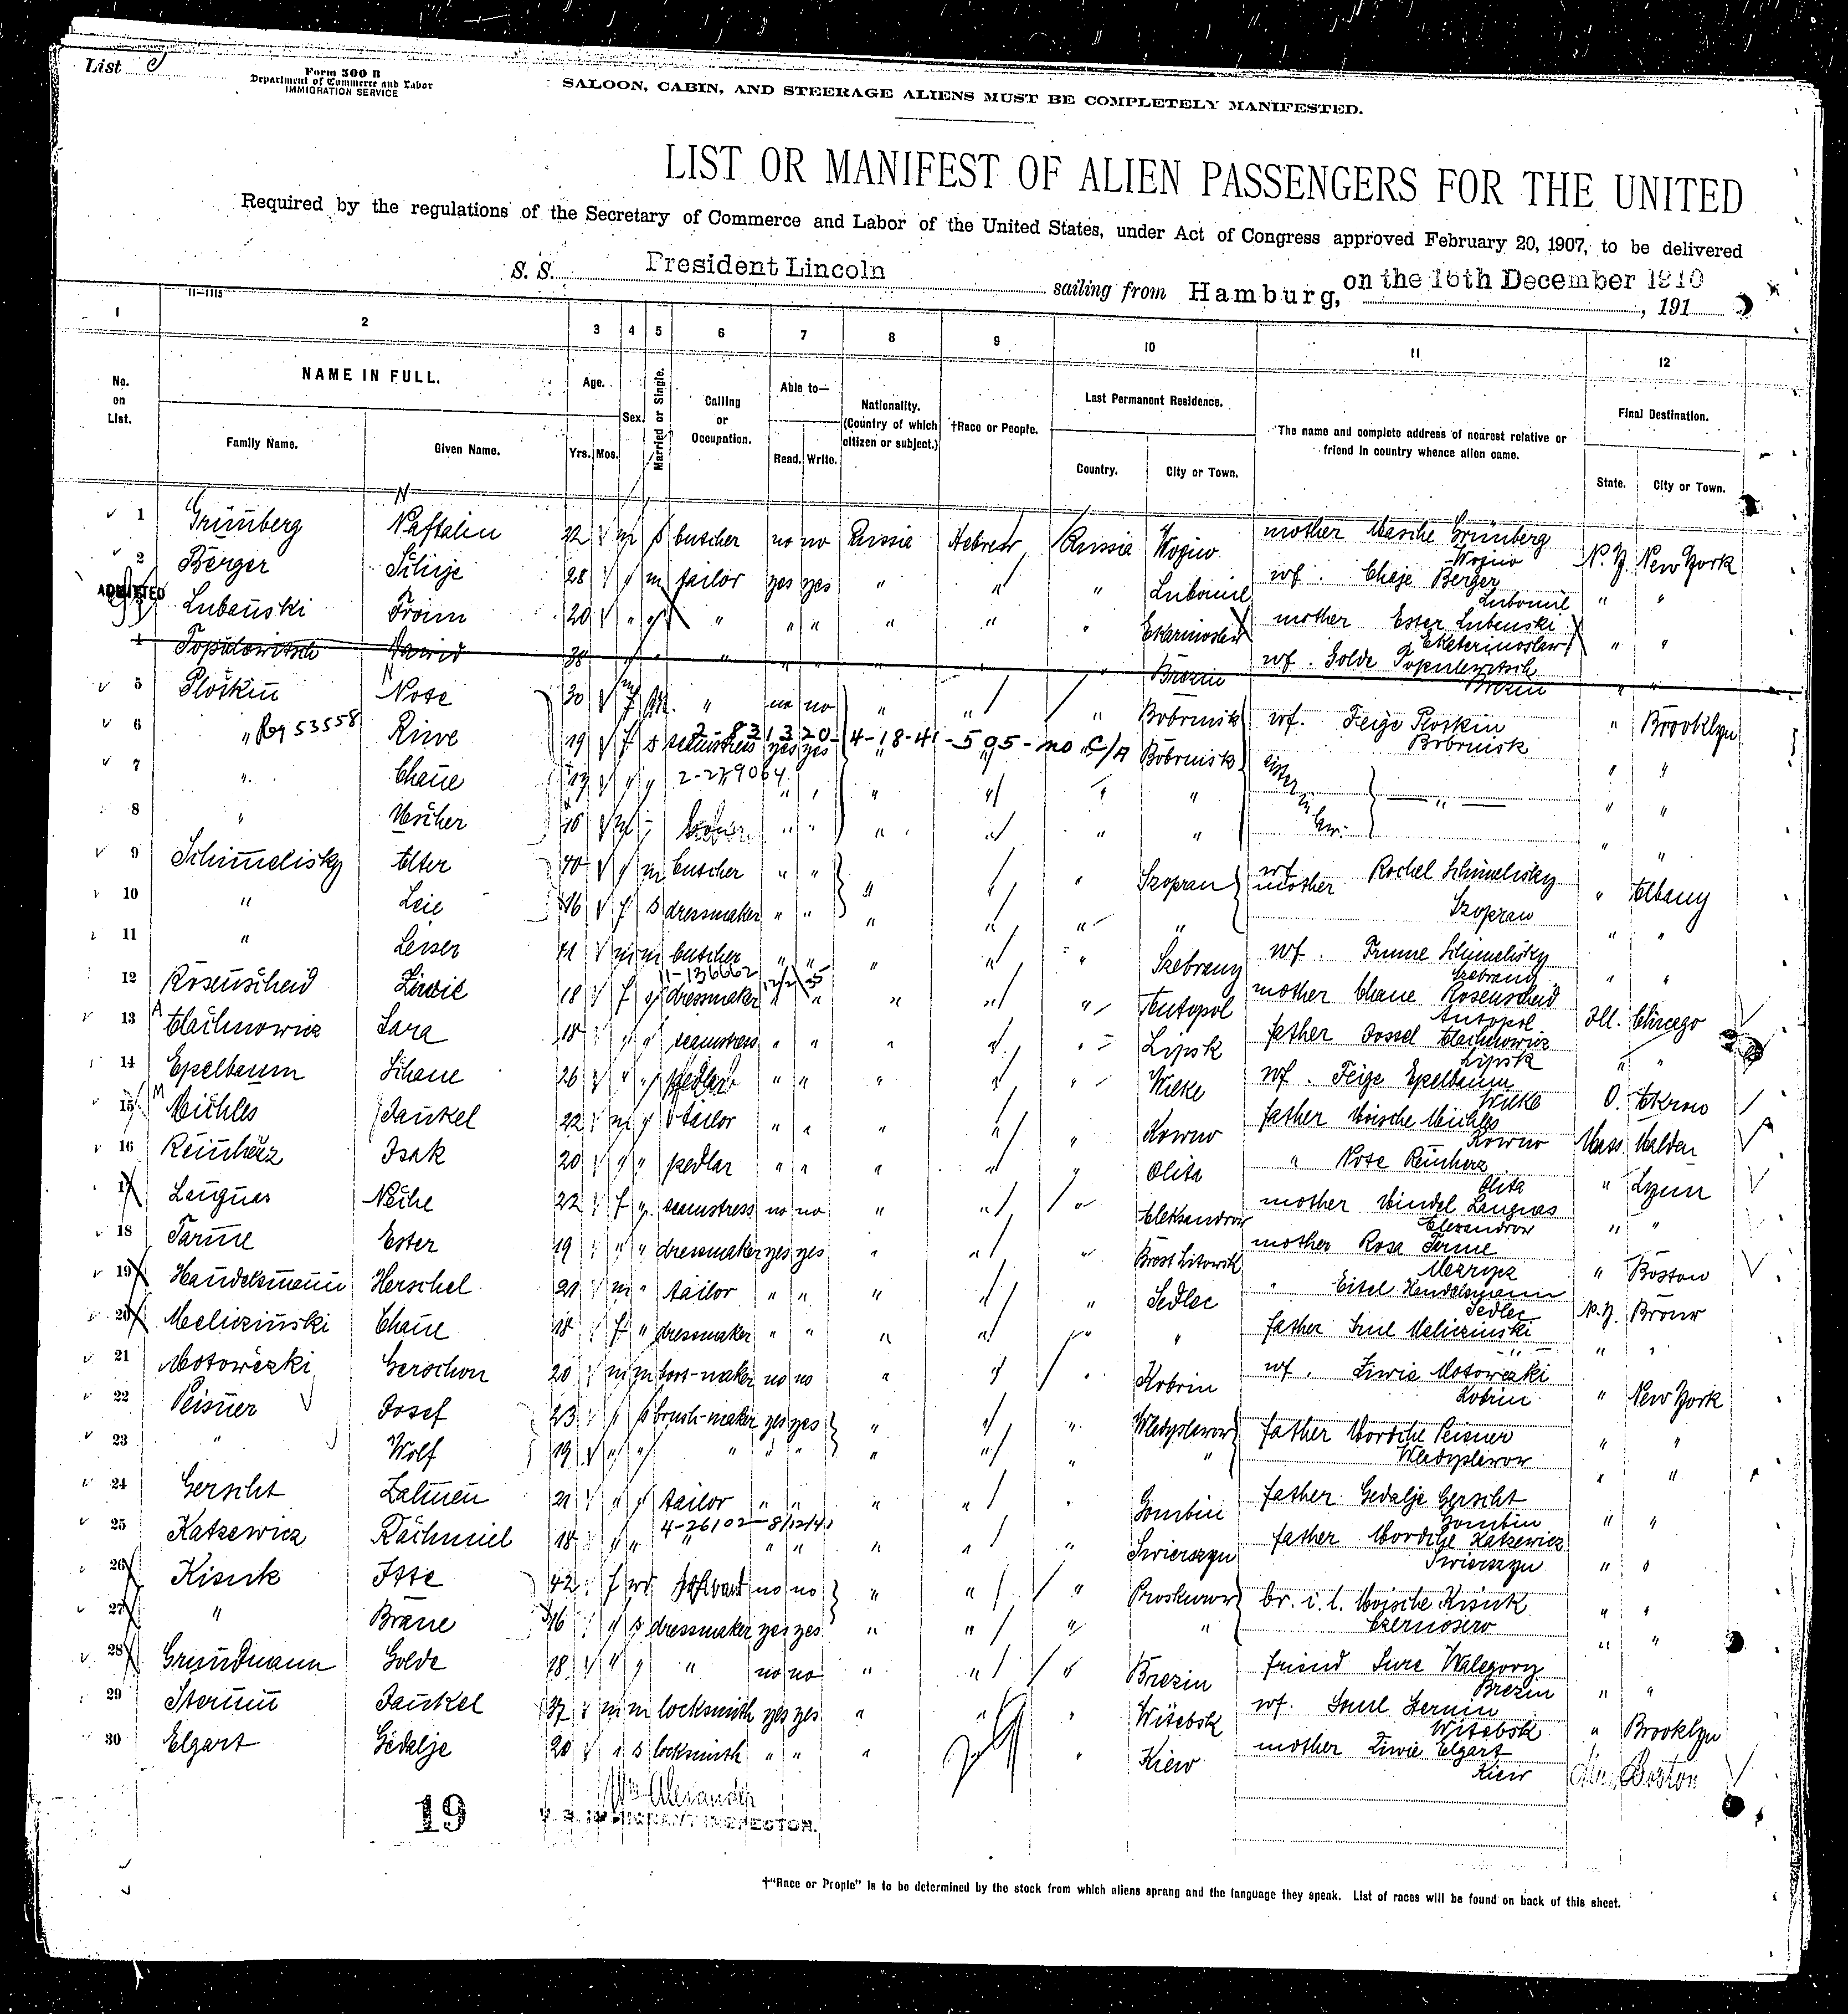 List
Form 500 B
Department of Commerce and Labor
IMMIGRATION SERVICE
SALOON, CABIN, AND STEERAGE ALIENS MUST BE COMPLETELY MANIFESTED.
LIST OR MANIFEST OF ALIEN PASSENGERS FOR THE UNITED
Required by the regulations of the Secretary of Commerce and Labor of the United States, under Act of Congress approved February 20, 1907, to be delivered
S. S. President Lincoln sailing from Hamburg, on the 16th December 1910, 191
11—1115
1 2 3 4 5 6 7 8 9 10 11 12
No. on List. NAME IN FULL. Family Name. Given Name. Age. Yrs. Mos. Sex. Married or Single. Calling or Occupation. Able to— Read. Write. Nationality. (Country of which citizen or subject.) †Race or People. Last Permanent Residence. Country. City or Town. The name and complete address of nearest relative or friend in country whence alien came. Final Destination. State. City or Town.
1 Grünberg Naftalin 22 m s butscher no no Russia Hebrew Russia Wojno mother Masche Grünberg Wojno N.Y. New York
2 Berger 28 m tailor yes yes " " " Lubomil wf. Chaje Berger Lubomil " "
ADMITTED
Lubanski Froim 20 " " " " " " " " mother Ester Lubenski Ekaterinoslaw " "
4 38 " " " " " " " Brezin wf. Golde Brezin " "
5 Ploskin Nose 30 m m " no no " " " Bobruisk wf. Feige Ploskin Bobruisk " Brooklyn
6 " Rg 53558 Riwe 19 f s seamstress yes yes 2-831320-(4-18-41-505-no C/A Bobruisk " "
7 " Chane 17 " " 2-279064 " " " " " " sister in law " " "
8 " Mscher " " " " " " " "
9 Schimelisky Alter 40 m butscher " " " " " Szopran wf. mother Rochel Schimelisky Szopran " Albany
10 " Leie 16 f s dressmaker " " " " " " " "
11 " Leiser 41 m m butscher " " " " " Szebrany wf. Schimelisky Szebrany " "
12 Rosenscheid Ziwie 18 f dressmaker 11-136662 " " " " " Antopol mother Chane Rosenscheid Antopol Ill. Chicago
13 Sara 18 " " seamstress " " " " " Lipsk father Jossel Lipsk " "
14 Epelbaum 26 " pedlar " " " " " Wilke wf. Feige Epelbaum Wilke O. Akron
15 Michles Jankel 22 m tailor " " " " " Kowno father Moische Michles Kowno Mass. Malden
16 Reinherz Isak 20 " " pedlar " " " " " Olita " Nose Reinherz Olita " Lynn
17 Langnas Neche 22 f " seamstress no no " " " Aleksandrow mother Mindel Langnas Alexandrow " "
18 Tarme Ester 19 " " dressmaker yes yes " " " Brest Litowsk mother Rosa Terme " Boston
19 Handelsmann Herschel 21 m " tailor " " " " " Sedlec " Eisel Handelsmann Sedlec N.Y. Bronx
20 Melicziński Chane 18 f " dressmaker " " " " " " father Srul Melicziński " " "
21 Gerschon 20 m m no no " " " Kobrin wf. Ziwie Kobrin " New York
22 Peisner Josef 23 " s brush-maker yes yes " " " Wladyslawow father Mordche Peisner Wladyslawow " "
23 " Wolf 19 " " " " " " " " " " "
24 Gerscht Zalmen 21 " " tailor " " " " " Gombin father Gedalje Gerscht Gombin " "
25 Katzewicz Rachmiel 18 " " 4-26102—8/12/41 " " " " " Swierszyn father Mordche Katzewicz Swierszyn " "
26 Kisuk Itte 42 f wd no no " " " Proskurow br. i. l. Moische Kisuk " "
27 " Brane 16 " s dressmaker yes yes " " " " " "
28 Grundmann Golde 18 " " " no no " " " Brezin friend Sure Brezin " "
29 Sternin Jankel 37 m m locksmith yes yes " " " Witebsk wf. Witebsk " Brooklyn
30 Elgart Gedalje 20 " s locksmith " " " " Kiew mother Ziwie Elgart Kiew Boston
Wm Alexander
U. S. IMMIGRANT INSPECTOR.
19
†"Race or People" is to be determined by the stock from which aliens sprang and the language they speak. List of races will be found on back of this sheet.